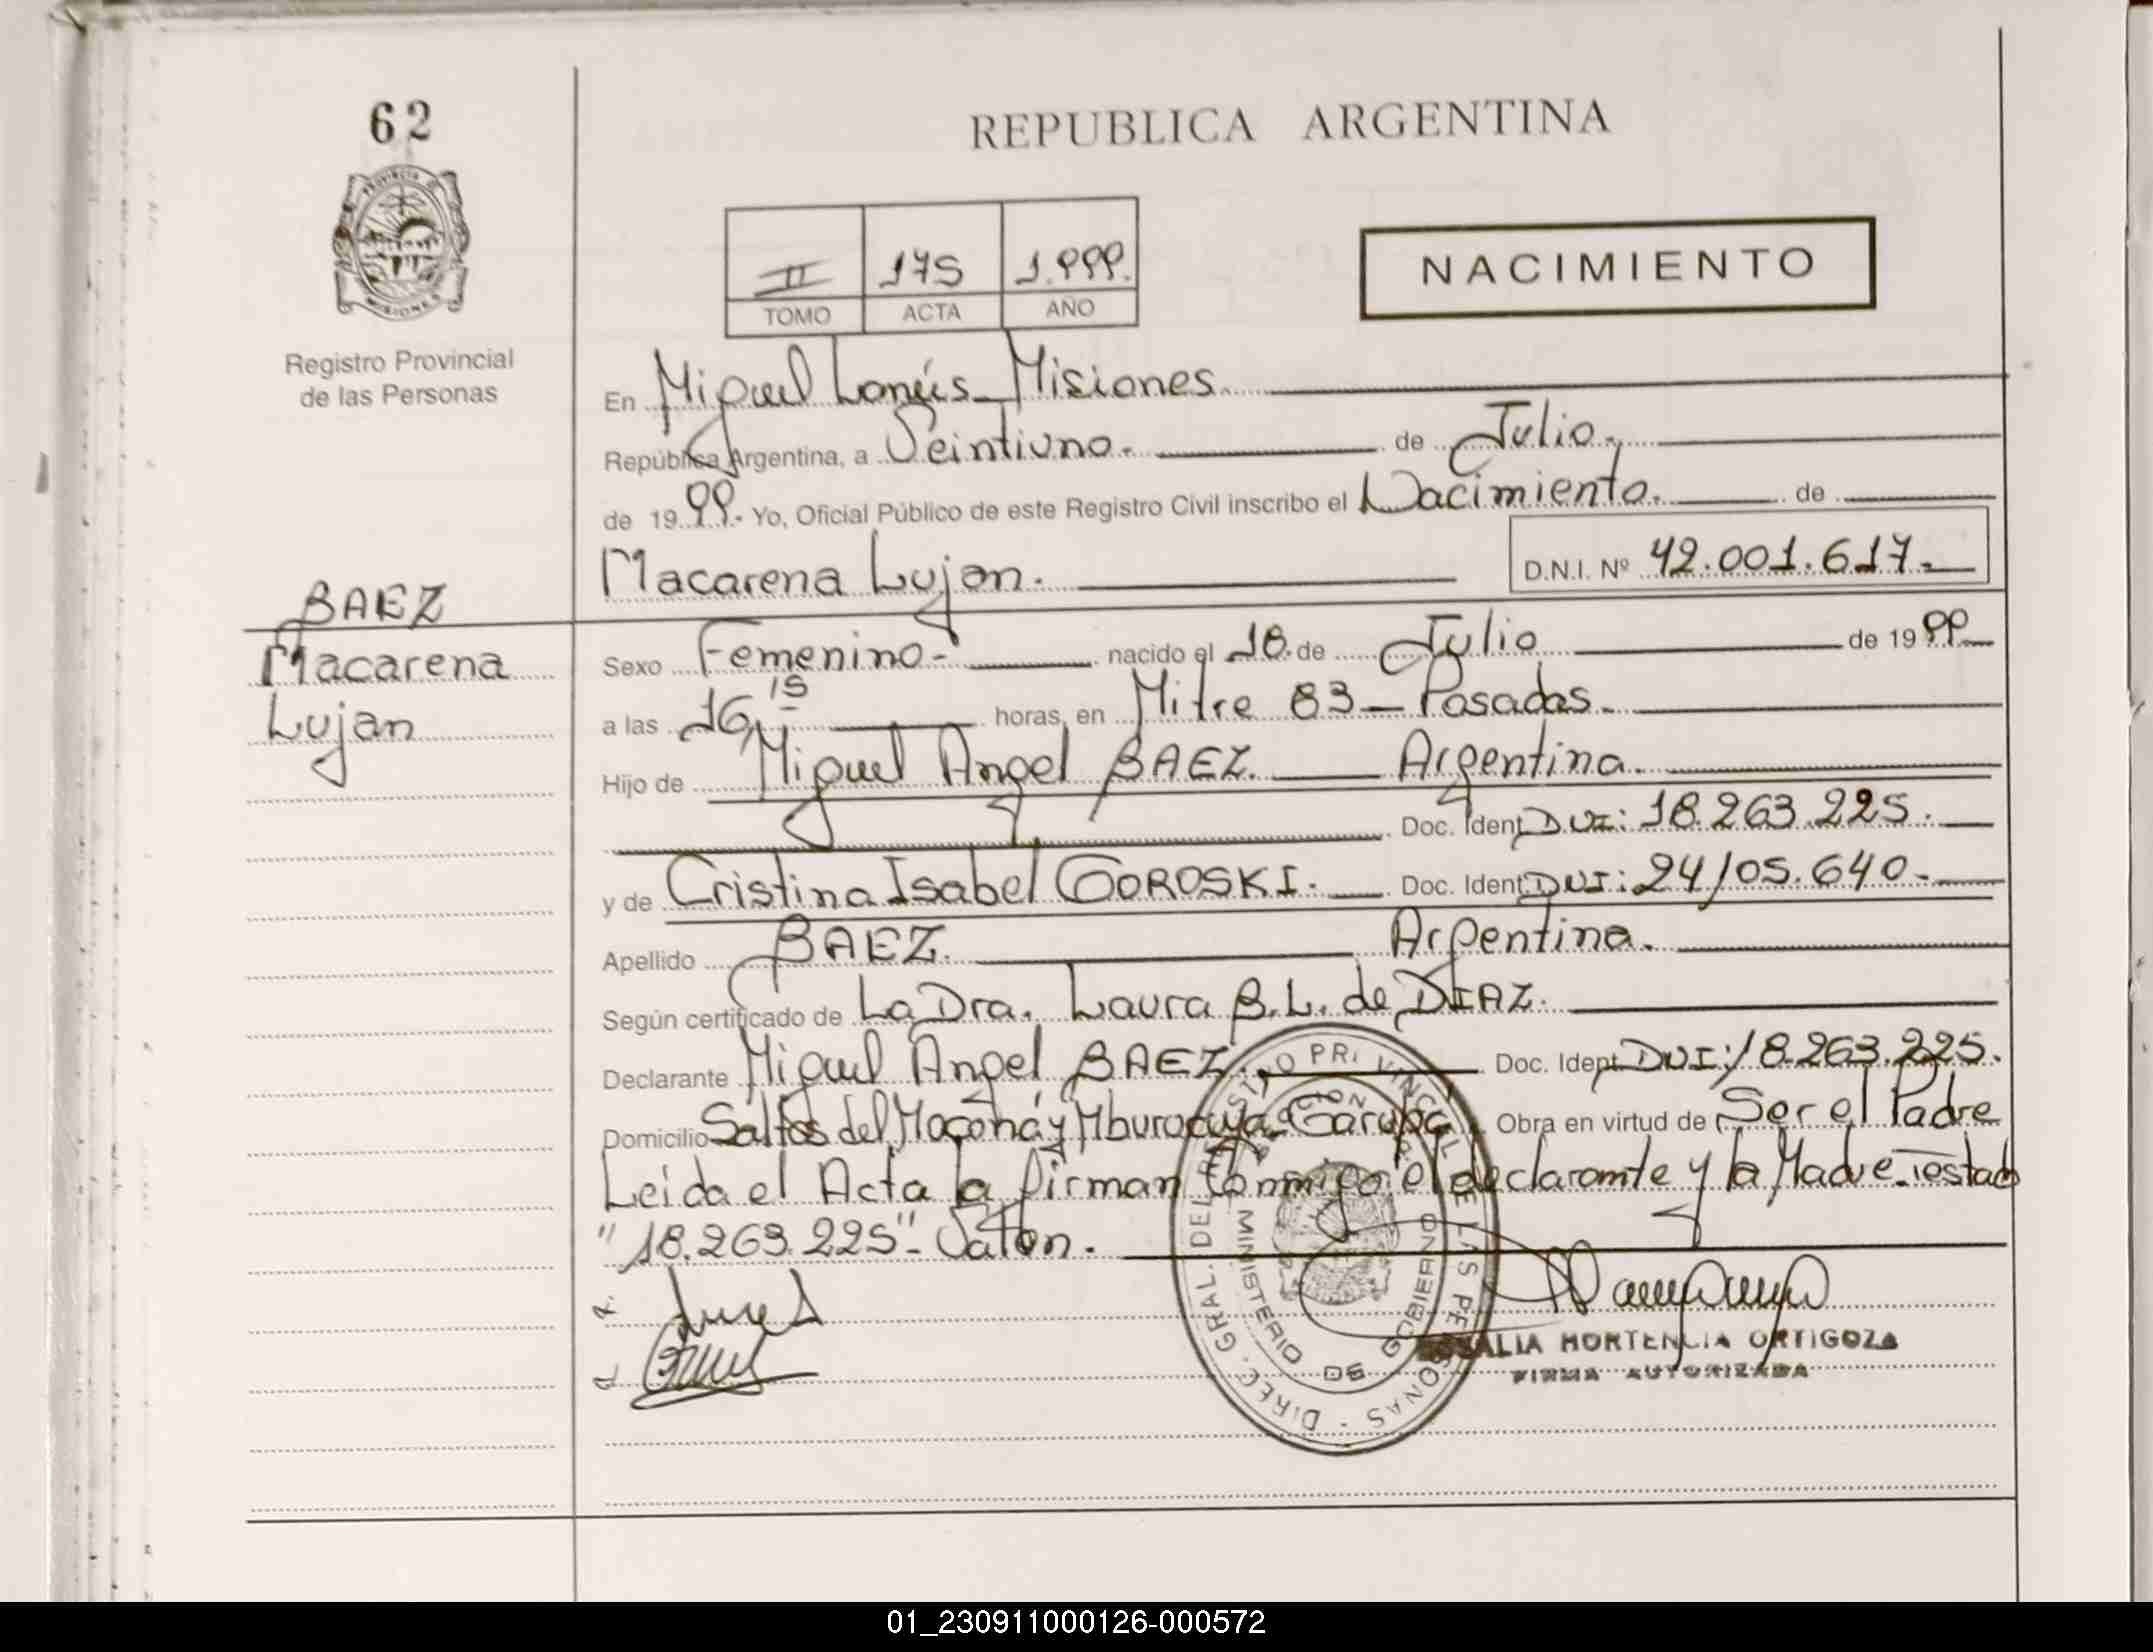 62
REPUBLICA ARGENTINA
PROVINCIA DE MISIONES
Registro Provincial
de las Personas
II 175 1.999.
TOMO ACTA AÑO
NACIMIENTO
En Miguel Lanús - Misiones
República Argentina, a Veintiuno. de Julio.
de 1999.- Yo, Oficial Público de este Registro Civil inscribo el Nacimiento. de
Macarena Lujan. D.N.I. Nº 42.001.617.-
BAEZ
Macarena
Lujan
Sexo Femenino- nacido el 18 de Julio de 1999
a las 16,15 horas, en Mitre 83 - Posadas.
Hijo de Miguel Angel BAEZ. Argentina.
Doc. Ident DNI: 18.263.225.
y de Cristina Isabel GOROSKI. Doc. Ident DNI: 24/05.640.-
Apellido BAEZ. Argentina.
Según certificado de La Dra. Laura B.L. de DIAZ.
Declarante Miguel Angel BAEZ. Doc. Ident DNI: 18.263.225.
Domicilio Saltos del Moconá y Mburucuya - Garupá Obra en virtud de Ser el Padre
Leida el Acta la firman conmigo el declarante y la Madre. Testado
"18.263.225" - Valen.
DIREC. GRAL. DEL REGISTRO PROVINCIAL DE LAS PERSONAS -
MINISTERIO DE GOBIERNO
ROSALIA HORTENCIA ORTIGOZA
FIRMA AUTORIZADA
01_230911000126-000572